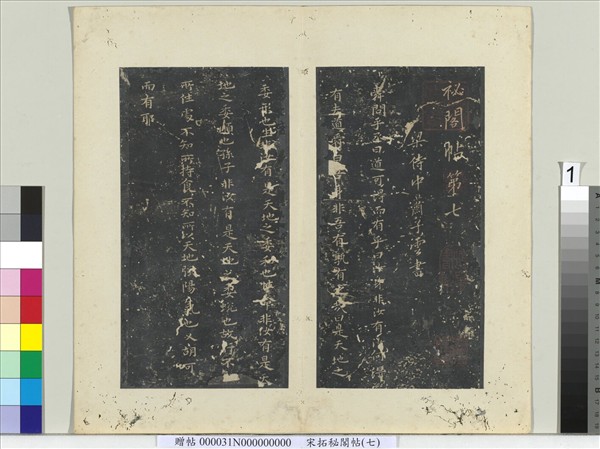 祕閣帖第七
梁侍中蕭子雲書
舜問乎丞曰道可得而有乎曰汝身非汝有
有夫道舜曰吾身非吾有孰有之哉曰是天地之
委形也生非汝有是天地之委和也性命非汝有是
地之委順也孫子非汝有是天地之委蛻也故行不
所往處不知所持食不知所以天地強陽氣也又胡可
而有耶
1
贈帖 000031N000000000 宋拓祕閣帖(七)